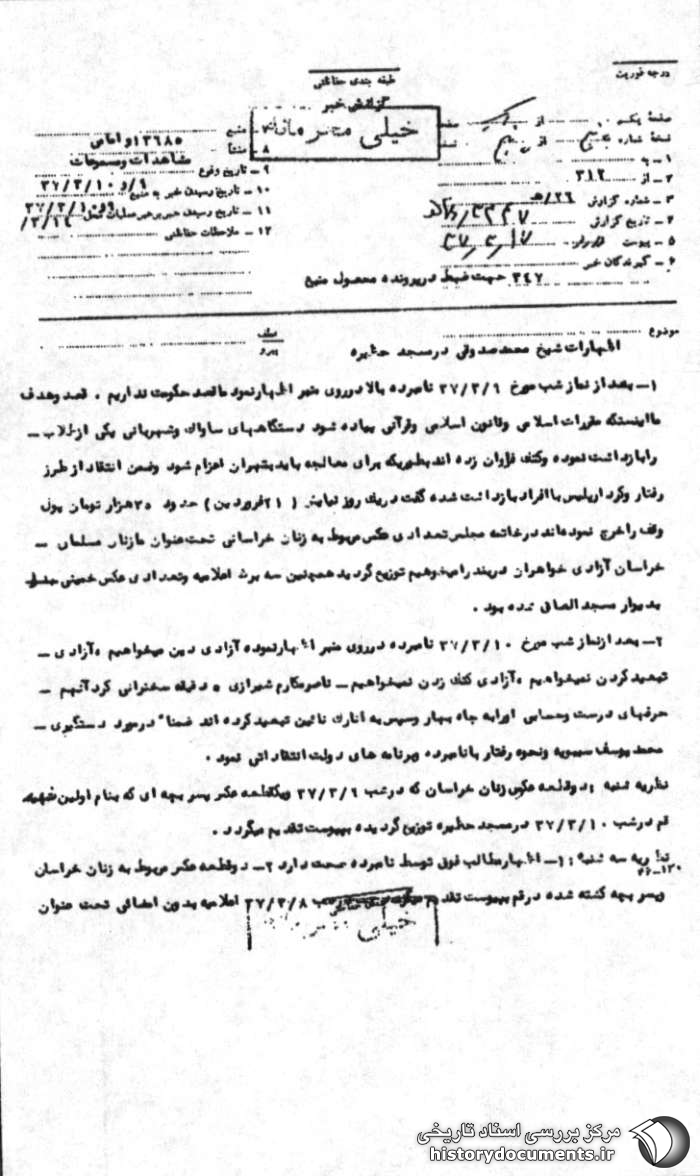 درجه فوریت
طبقه بندی حفاظتی
گزارش خبر
خیلی محرمانه
صفحه یکم از یک صفحه
نسخه شماره پنج از پنج نسخه
۱ـ به
۲ـ از ۳۱۲
۳ـ شماره گزارش ۲۶/هـ
۴ـ تاریخ گزارش
۵ـ پیوست
۶ـ گیرندگان خبر
۷ـ منبع ۱۳۶۸۵ و امامی
۸ـ منشأ مشاهدات و مسموعات
۹ـ تاریخ وقوع ۹ و ۳۷/۳/۱۰
۱۰ـ تاریخ رسیدن خبر به منبع
۱۱ـ تاریخ رسیدن خبر برهبر عملیات
۱۲ـ ملاحظات حفاظتی
۳۴۷ جهت ضبط در پرونده محصول منبع
موضوع
عطف
پیرو
اظهارات شیخ محمد صدوقی در مسجد حظیره
۱ـ بعد از نماز شب مورخ ۳۷/۳/۹ نامبرده بالا در روی منبر اظهار نمود ما قصد حکومت نداریم . قصد و هدف
ما اینستکه مقررات اسلامی و قانون اسلامی و قرآنی پیاده شود دستگاههای ساواک و شهربانی یکی از طلاب ـ
را بازداشت نموده و کتک فراوان زده اند بطوریکه برای معالجه باید بتهران اعزام شود وضمن انتقاد از طرز
رفتار و کردار پلیس با افراد بازداشت شده گفت در یک روز نمایش ( ۲۱ فروردین ) حدود ۳۰ هزار تومان پول
وقف را خرج نموده اند در خاتمه مجلس تعدادی عکس مربوط به زنان خراسانی تحت عنوان مازنان مسلمان ـ
خراسان آزادی خواهران در بند را میخواهیم توزیع گردید همچنین سه برگ اعلامیه وتعدادی عکس خمینی
بدیوار مسجد الصاق شده بود .
۲ـ بعد از نماز شب مورخ ۳۷/۳/۱۰ نامبرده در روی منبر اظهار نموده آزادی دین میخواهیم ، آزادی ـ
تبعید کردن نمیخواهیم ، آزادی کتک زدن نمیخواهیم ـ ناصر مکارم شیرازی ۵ دقیقه سخنرانی کرد آنهم ـ
حرفهای درست وحسابی اورا به چاه بهار وسپس به انارک نائین تبعید کرده اند ضمناً در مورد دستگیری ـ
محمد یوسف سیبویه ونحوه رفتار با نامبرده وبرنامه های دولت انتقاداتی نمود .
نظریه شنبه : دو قطعه عکس زنان خراسان که در شب ۳۷/۳/۹ ویکقطعه عکس پسر بچه ای که بنام اولین شهید
قم در شب ۳۷/۳/۱۰ در مسجد حظیره توزیع گردیده بپیوست تقدیم میگردد .
نظریه سه شنبه : ۱ـ اظهار مطالب فوق توسط نامبرده صحت دارد ۲ـ دو قطعه عکس مربوط به زنان خراسان
۴۶-۱۳۰
وپسر بچه کشته شده در قم بپیوست تقدیم ۳۷/۳/۸ اعلامیه بدون امضائی تحت عنوان
خیلی محرمانه
مرکز بررسی اسناد تاریخی
historydocuments.ir